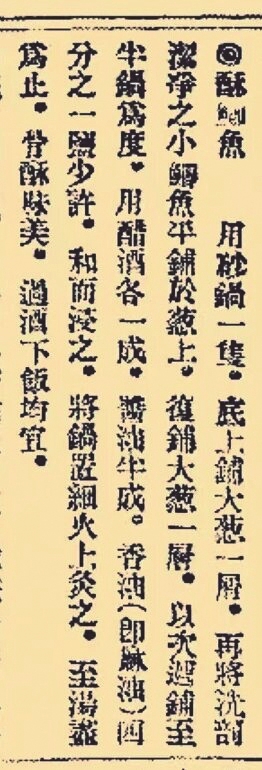 ◎酥鯽魚　用砂鍋一隻。底上鋪大葱一層。再將洗剖
潔淨之小鯽魚平鋪於葱上。復鋪大葱一層。以次遞鋪至
半鍋爲度。用醋酒各一成。醬油半成。香油(卽蔴油)四
分之一鹽少許。和而浸之。將鍋置細火上炙之。至湯盡
爲止。骨酥味美。過酒下飯均宜。